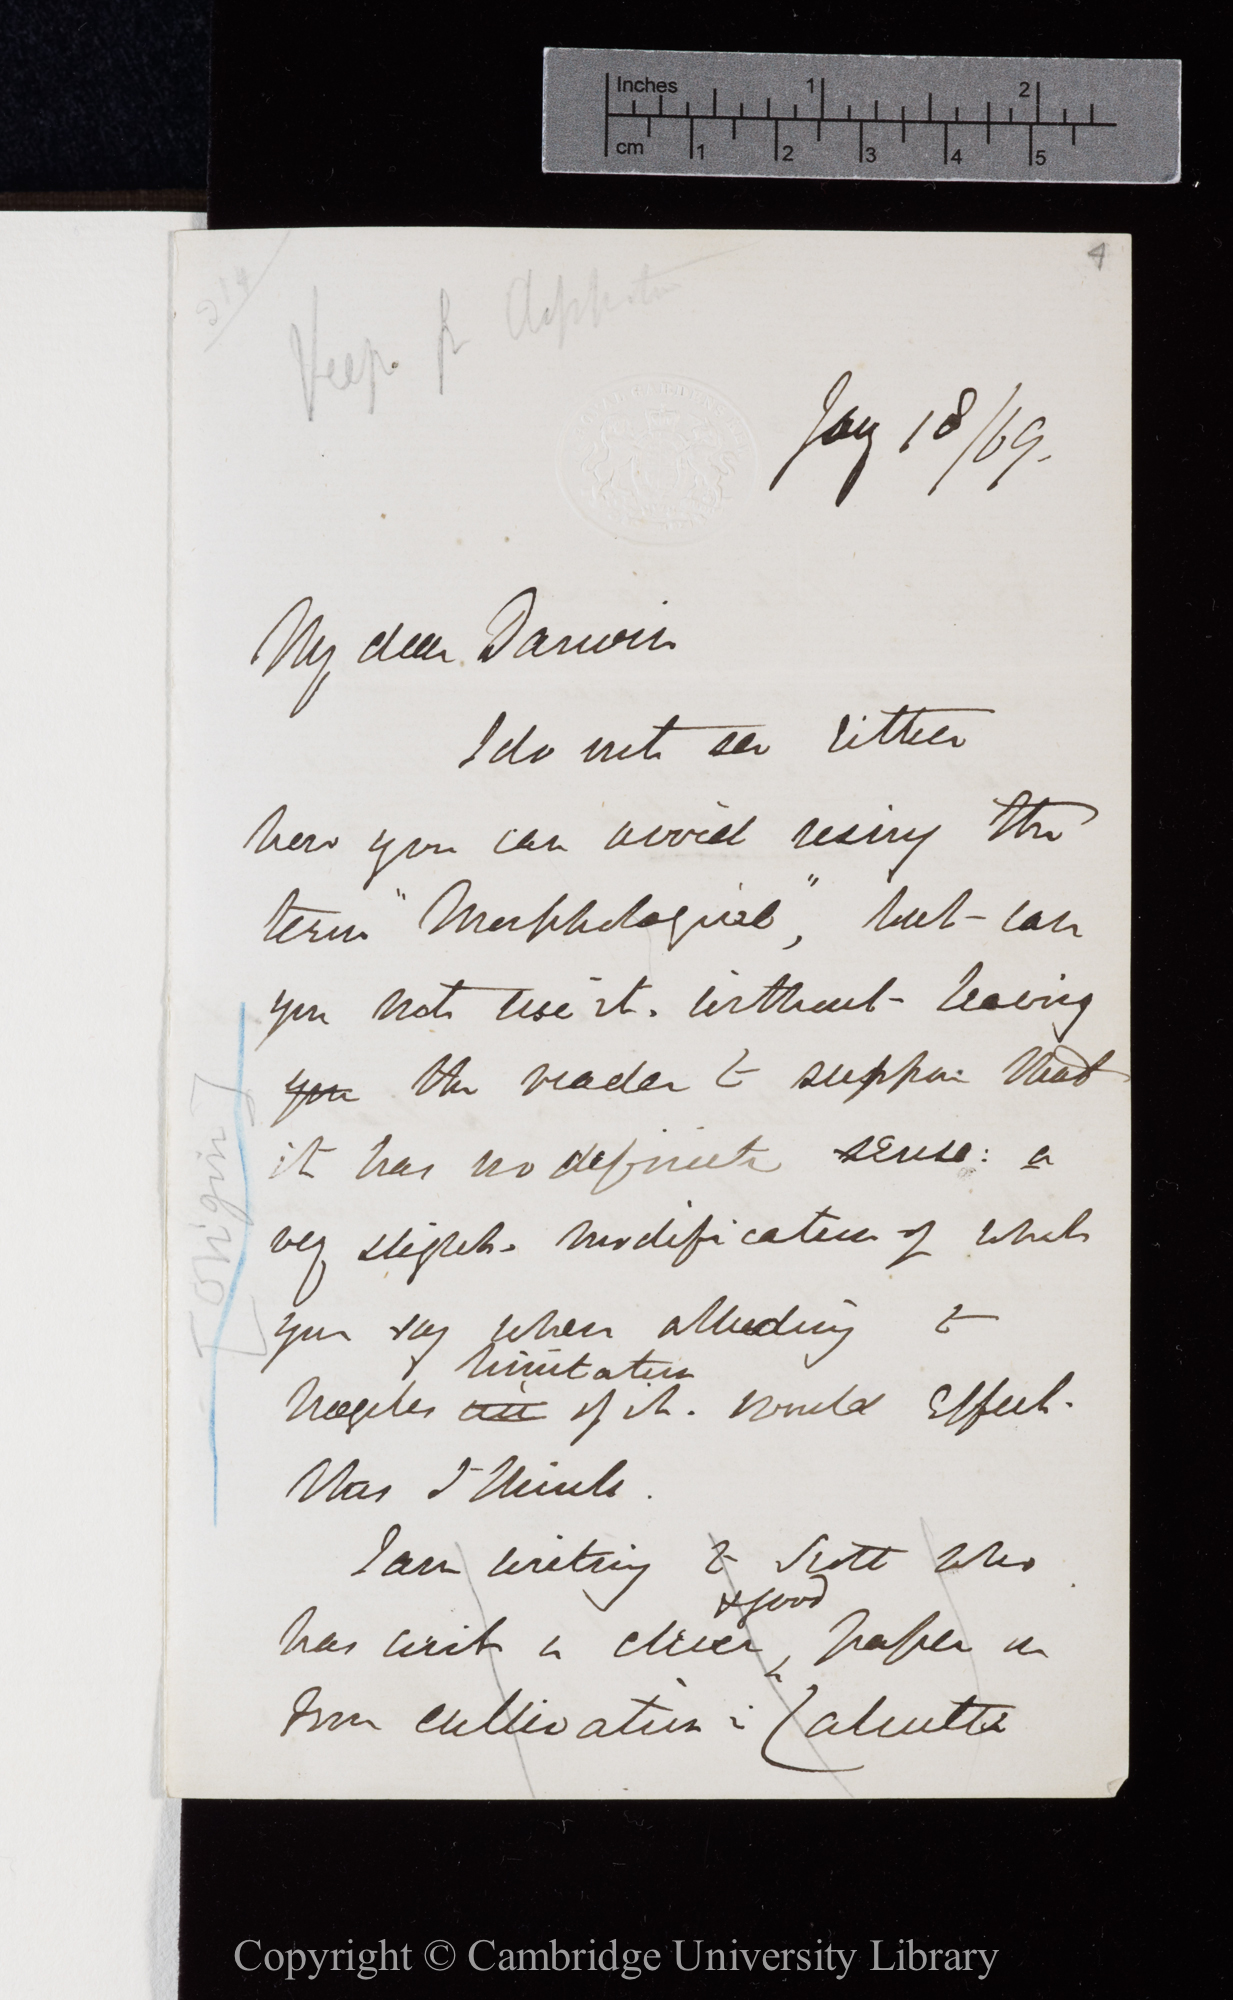 Inches 1 2
cm 1 2 3 4 5
4
Keep for
Jany 18/69.
My dear Darwin
I do not see either
how you can avoid using the
term "Morphological", but can
you not use it. without leaving
you the reader to suppose that
it has no definite sense: a
very slight modification of what
you say when alluding to
limitation
Nageli's of it. would effect
this I think.
I am writing to Scott who
& good
has writ a clever, paper on
from cultivation in Calcutta
[Origin]
Copyright © Cambridge University Library